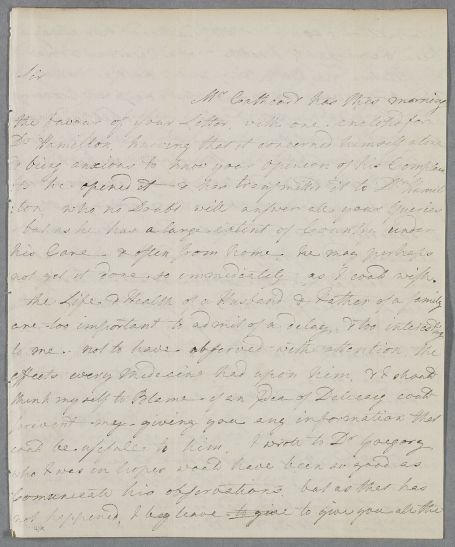 Sir
Mr Cathcart has this morning
the favour of your Letter with one enclosed for
Dr Hamilton, knowing that it concerned himself alone
& being anxious to know your opinion of his Complaint
he opened it & has transmitted it to Dr Hamil
ton who no Doubt will answer all your Queries
but as he has a large extent of Country under
his Care & often from home he may perhaps
not get it done so immediately as I coud wish.
the Life & Health of a Husband & Father of a family
are too important to admit of a delay, & too interesting
to me not to have observed with attention the
effects every Medecine had upon him, & I shoud
think myself to Blame if an Idea of Delicacy coud
prevent my giving you any information that
coud be usefull to him. I wrote to Dr Gregory
who I was in hopes woud have been so good as
Comunicate his observations but as that has
not happened, I beg leave to give to give you all the